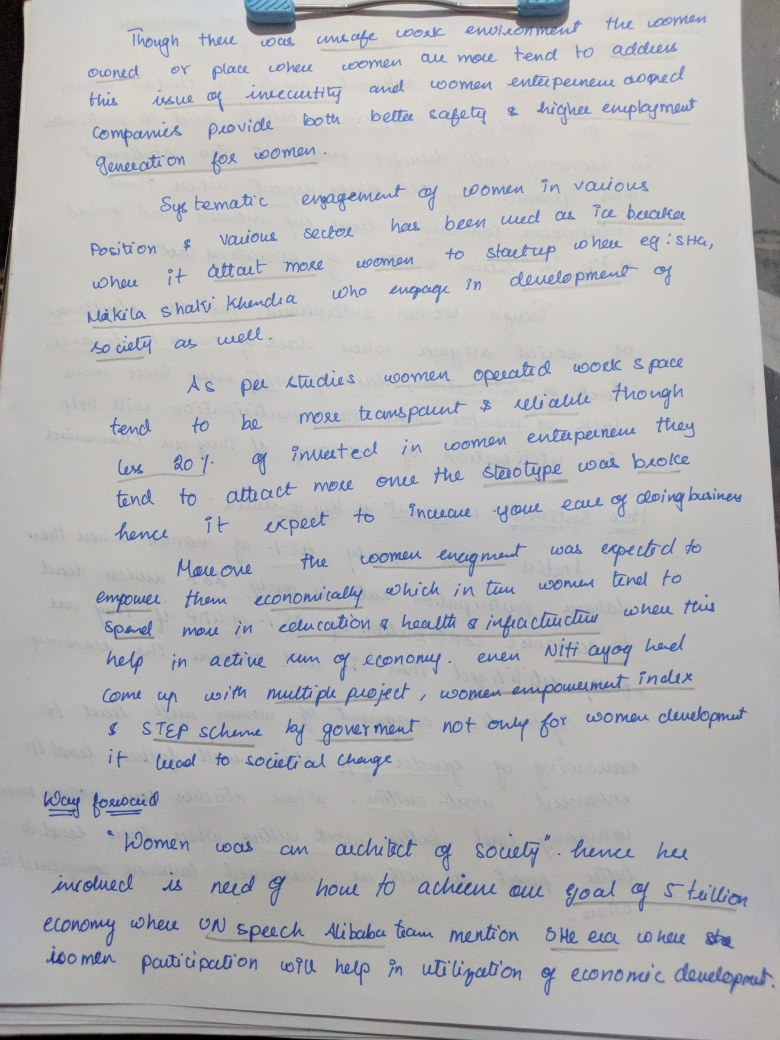 Though there was unsafe work environment the women
owned or place where women are more tend to address
this issue of insecurity and women enterperneur owned
companies provide both better safety & higher employment
generation for women.
Systematic engagement of women in various
Position & various sector has been used as ice breaker
where it attract more women to startup where eg: SHG,
Makila Shakti Khendra who engage in development of
society as well.
As per studies women operated work space
tend to be more transparent & reliable though
less 20% of invested in women enterperneur they
tend to attract more once the sterotype was broke
hence it expect to increase your ease of doing business
Moreove the women enagment was expected to
empower them economically which in turn women tend to
spend more in education & health & infractructure where this
help in active run of economy. even Niti ayog head
come up with multiple project, women empowerment index
& STEP scheme by goverment not only for women development
it lead to societial change
Way forward
"Women was an architect of society". hence her
involved is need of hour to achieve our goal of 5 trillion
economy where UN speech Alibaba team mention SHe era where
women participation will help in utilization of economic development.